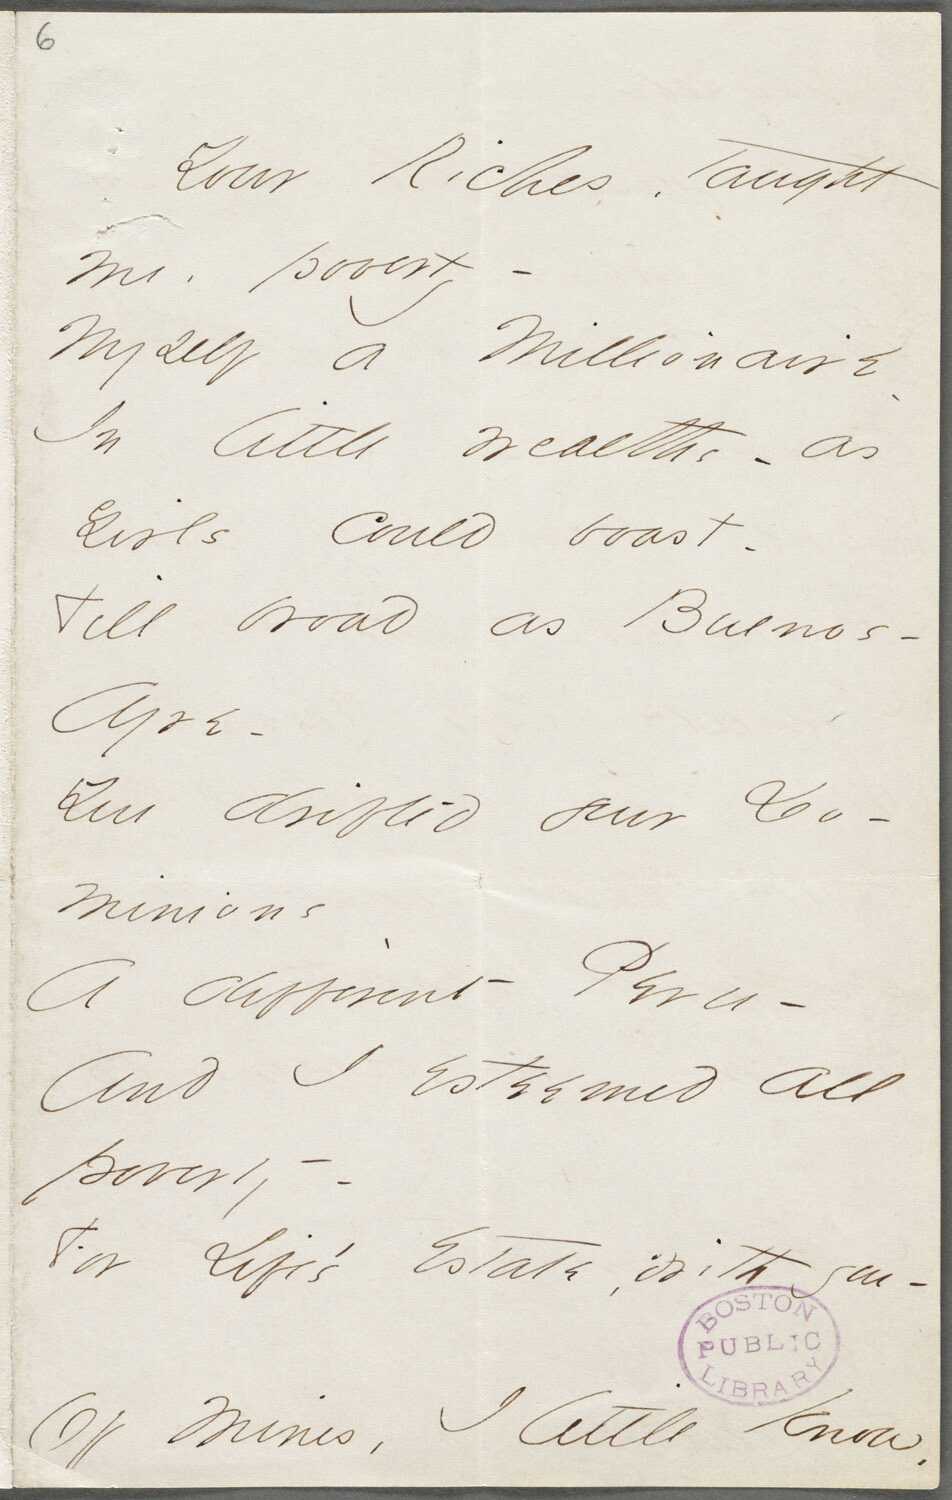 6
Your Riches, taught
me, poverty -
Myself a Millionaire
In little wealths - as
Girls could boast -
Till broad as Buenos -
Ayre -
You drifted your Do-
minions
A different Peru -
And I esteemed all
poverty -
For Life's Estate, with you -
Of Mines, I little know,
BOSTON
PUBLIC
LIBRARY